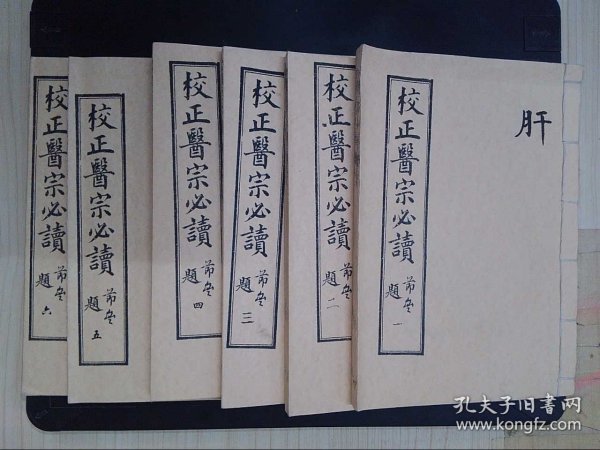 肝
校正醫宗必讀
題
一
校正醫宗必讀
題
二
校正醫宗必讀
題
三
校正醫宗必讀
題
四
校正醫宗必讀
題
五
校正醫宗必讀
題
六
孔夫子旧书网
www.kongfz.com